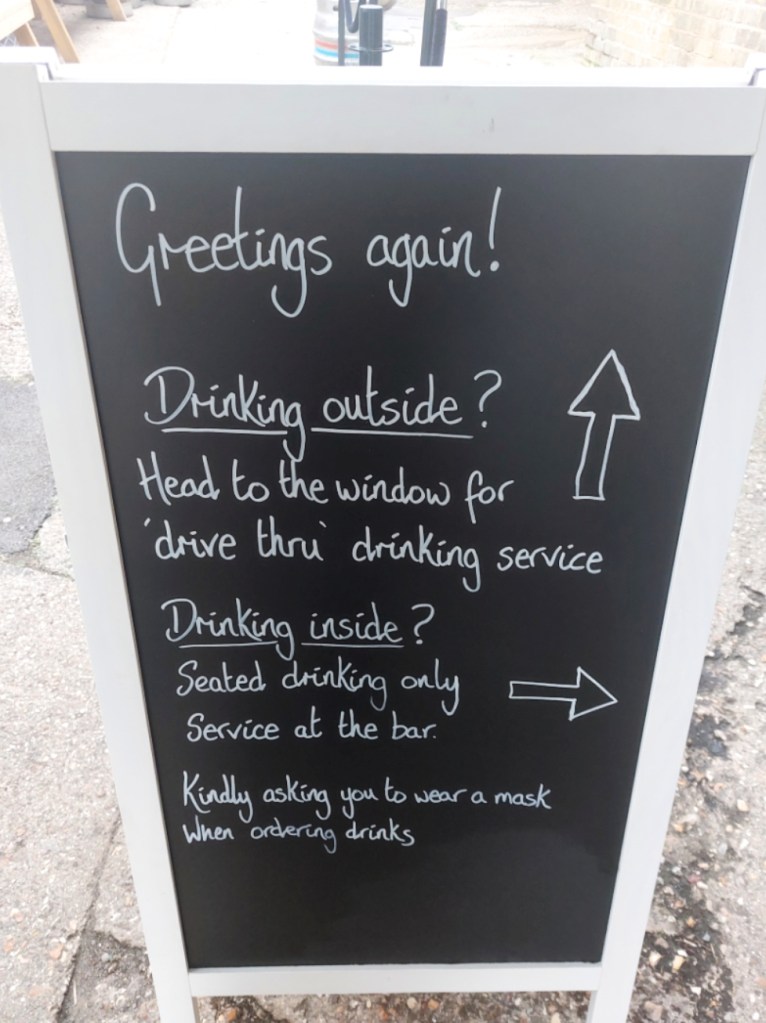 Greetings again!
Drinking outside?
Head to the window for
'drive thru' drinking service
Drinking inside?
Seated drinking only
Service at the bar.
Kindly asking you to wear a mask
When ordering drinks